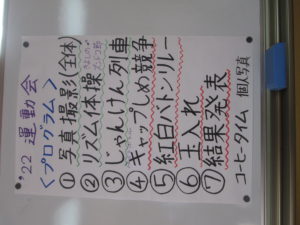 '22 運動会
<プログラム>
①写真撮影(全体)
②リズム体操
③じゃんけん列車
④キャップしめ競争
⑤紅白バトンリレー
⑥玉入れ
⑦結果発表
コーヒータイム 個人写真